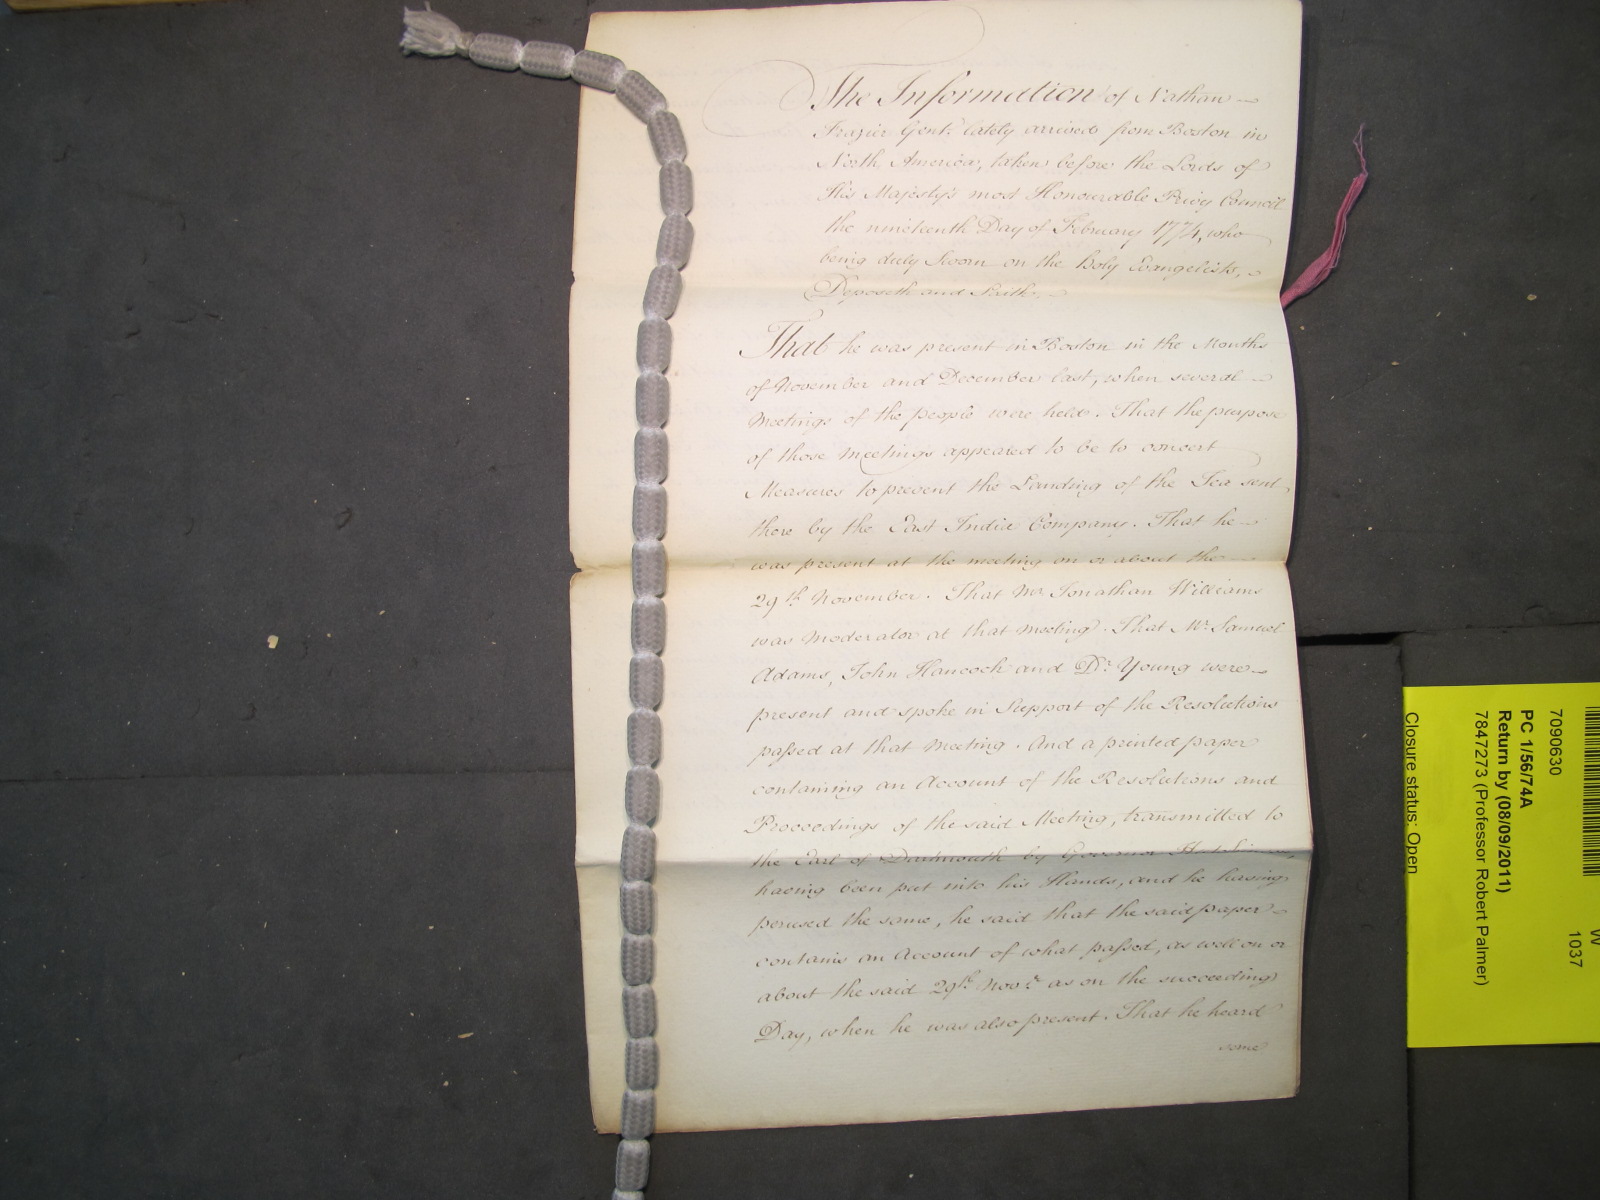 The Information of Nathan
Frazier Gent. lately arrived from Boston in
North America, taken before the Lords of
His Majesty's most Honourable Privy Council
the nineteenth Day of February 1774, who
being duly Sworn on the Holy Evangelists,
Deposeth and Saith.
That he was present in Boston in the Months
of November and December last, when several
Meetings of the people were held. That the purpose
of those Meetings appeared to be to concert
Measures to prevent the Landing of the Tea sent
there by the East India Company. That he
was present at the meeting on or about the
29th November. That Mr Jonathan Williams
was Moderator at that Meeting. That Mr. Samuel
Adams, John Hancock and Dr. Young were
present and spoke in Support of the Resolutions
passed at that Meeting. And a printed paper
containing an Account of the Resolutions and
Proceedings of the said Meeting, transmitted to
the Earl of Dartmouth by Governor Hutchinson,
having been put into his Hands, and he having
perused the same, he said that the said paper
contains an Account of what passed, as well on or
about the said 29th. Novr. as on the succeeding
Day, when he was also present. That he heard
some
W
1037
7090630
PC 1/56/74A
Return by (08/09/2011)
7847273 (Professor Robert Palmer)
Closure status: Open